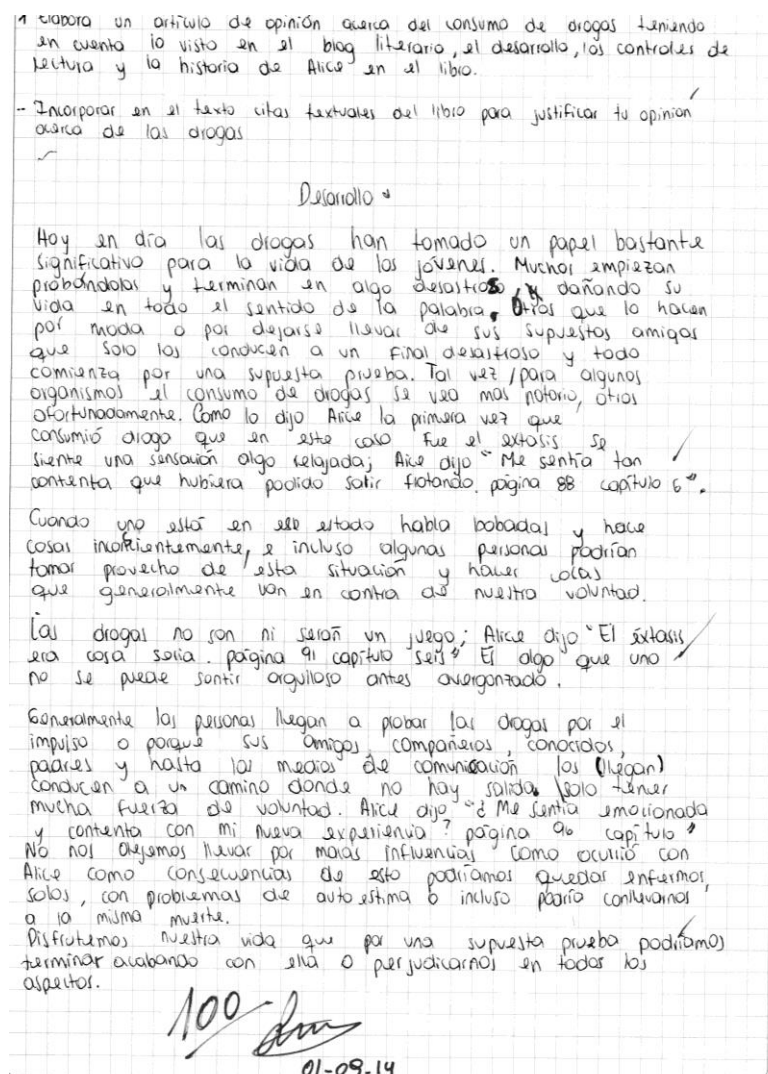 1 Elabora un artículo de opinión acerca del consumo de drogas teniendo
en cuenta lo visto en el blog literario, el desarrollo, los controles de
lectura y la historia de Alice en el libro.
- Incorporar en el texto citas textuales del libro para justificar tu opinión
acerca de las drogas
Desarrollo
Hoy en día las drogas han tomado un papel bastante
significativo para la vida de los jóvenes. Muchos empiezan
probandolas y terminan en algo desastroso, dañando su
vida en todo el sentido de la palabra. Otros que lo hacen
por moda o por dejarse llevar de sus supuestos amigos
que solo los conducen a un final desastroso y todo
comienza por una supuesta prueba. Tal vez para algunos
organismos el consumo de drogas se vea mas notorio, otros
afortunadamente. Como lo dijo Alice la primera vez que
consumió droga que en este caso fue el extasis se
siente una sensación algo relajada; Alice dijo "Me sentía tan
contenta que hubiera podido salir flotando. página 88 capítulo 6".
Cuando uno está en ese estado habla bobadas y hace
cosas incocientemente, e incluso algunas personas podrían
tomar provecho de esta situación y hacer cosas
que generalmente van en contra de nuestra voluntad.
Las drogas no son ni serán un juego; Alice dijo "El éxtasis
era cosa seria. página 91 capítulo seis" Es algo que uno
no se puede sentir orgulloso antes avergonzado.
Generalmente las personas llegan a probar las drogas por el
impulso o porque sus amigos, compañeros, conocidos,
padres y hasta los medios de comunicación los (llegan)
conducen a un camino donde no hay salida, solo tener
mucha fuerza de voluntad. Alice dijo "¿Me sentía emocionada
y contenta con mi nueva experiencia? página 96 capítulo"
No nos dejemos llevar por malas influencias como ocurrió con
Alice como consecuencias de esto podríamos quedar enfermos,
solos, con problemas de auto estima o incluso podría conllevarnos
a la misma muerte.
Disfrutemos nuestra vida que por una supuesta prueba podríamos
terminar acabando con ella o perjudicarnos en todos los
aspectos.
100
01-09-14